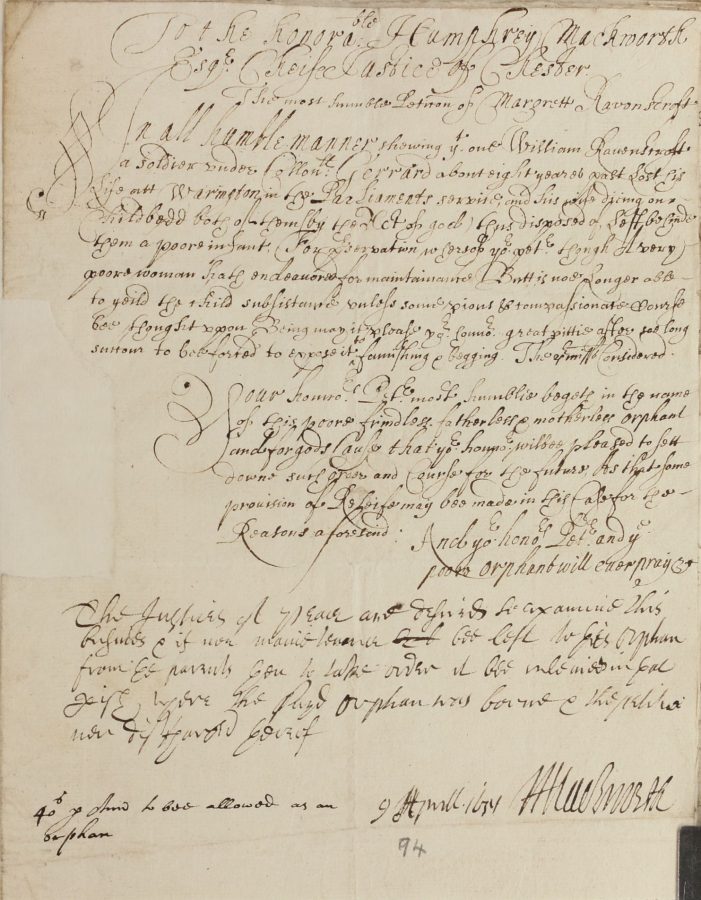 To the honora:ble Humphrey Mackworth
Esqr. Cheife Justice of Chester
The most humble Peticon of Margrett Ravenscroft
In all humble manner shewing yt. one William Ravenscroft
a soldier under Collon:ll Gerrard about eight yeares past lost his
life att Warmington in the Parliaments service, and his wife dying on
Childbedd both of them (by the Act of god) thus disposed of, left behinde
them a poore infant (For whersof yor. petr. though a very
poore woman hath endeavored for maintainance) Butt is noe longer able
to yeild the Child subsistance unless some pious & compassionate Course
bee thought uppon Being may it please yor. honnor. great pittie after soe long
succour to bee forced to expose it to famishing & begging. The pmisses Considered.
Your honnors. Petr. most humblie begeth in the name
of this poore frindless fatherless & motherless orphant
and for gods Cause that yor. honnor. wilbee pleased to sett
downe such order and Course for the future As that some
provision of Releife may bee made in this Case for the
Reasons aforesaid:
And yor. honors. Petr. and ye.
poore orphant will ever pray &c
The Justices of peace are desired to examine this
busines & if noe maintenance bee left to this orphan
from the parents then to take order it bee releived in that
pish where the sayd orphan was borne & the petitio
ner discharged thereof
9 Aprill. 1651 H Mackworth
40s p Annu to bee allowed as an
orphan
94